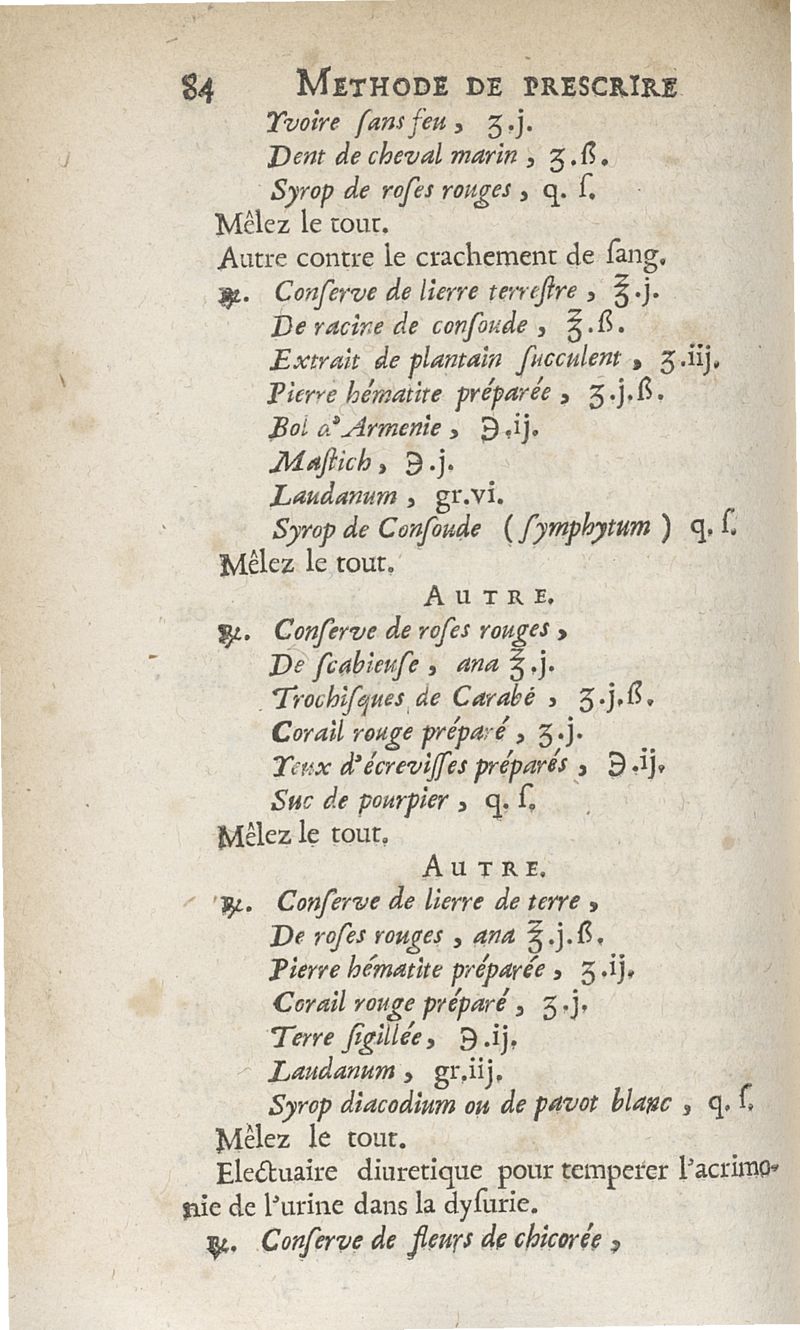 84 METHODE DE PRESCRIRE
Yvoire ſans feu, ʒ.j.
Dent de cheval marin, ʒ.ß.
Syrop de roſes rouges, q. ſ.
Mêlez le tout.
Autre contre le crachement de ſang.
℞. Conſerve de lierre terreſtre, ℥.j.
De racine de conſoude, ℥.ß.
Extrait de plantain ſucculent, ʒ.iij.
Pierre hématite préparée, ʒ.j.ß.
Bol d'Armenie, ℈.ij.
Maſtich, ℈.j.
Laudanum, gr.vi.
Syrop de Conſoude (ſymphytum) q. ſ.
Mêlez le tout.
AUTRE.
℞. Conſerve de roſes rouges,
De ſcabieuſe, ana ℥.j.
Trochiſques de Carabé, ʒ.j.ß.
Corail rouge préparé, ʒ.j.
Yeux d'écreviſſes préparés, ℈.ij.
Suc de pourpier, q. ſ.
Mêlez le tout.
AUTRE.
℞. Conſerve de lierre de terre,
De roſes rouges, ana ℥.j.ß.
Pierre hématite préparée, ʒ.ij.
Corail rouge préparé, ʒ.j.
Terre ſigillée, ℈.ij.
Laudanum, gr.iij.
Syrop diacodium ou de pavot blanc, q. ſ.
Mêlez le tout.
Electuaire diuretique pour temperer l'acrimo-
nie de l'urine dans la dyſurie.
℞. Conſerve de fleurs de chicorée,